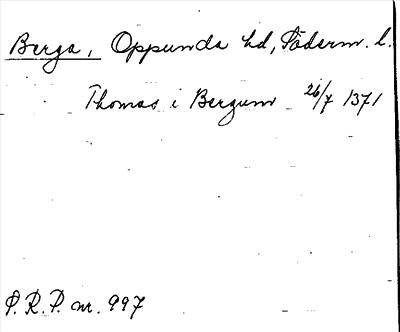 Berga, Oppunda hd, Söderm. l.
Thomas i Bergum 26/7 1371
P. R. P. nr. 997